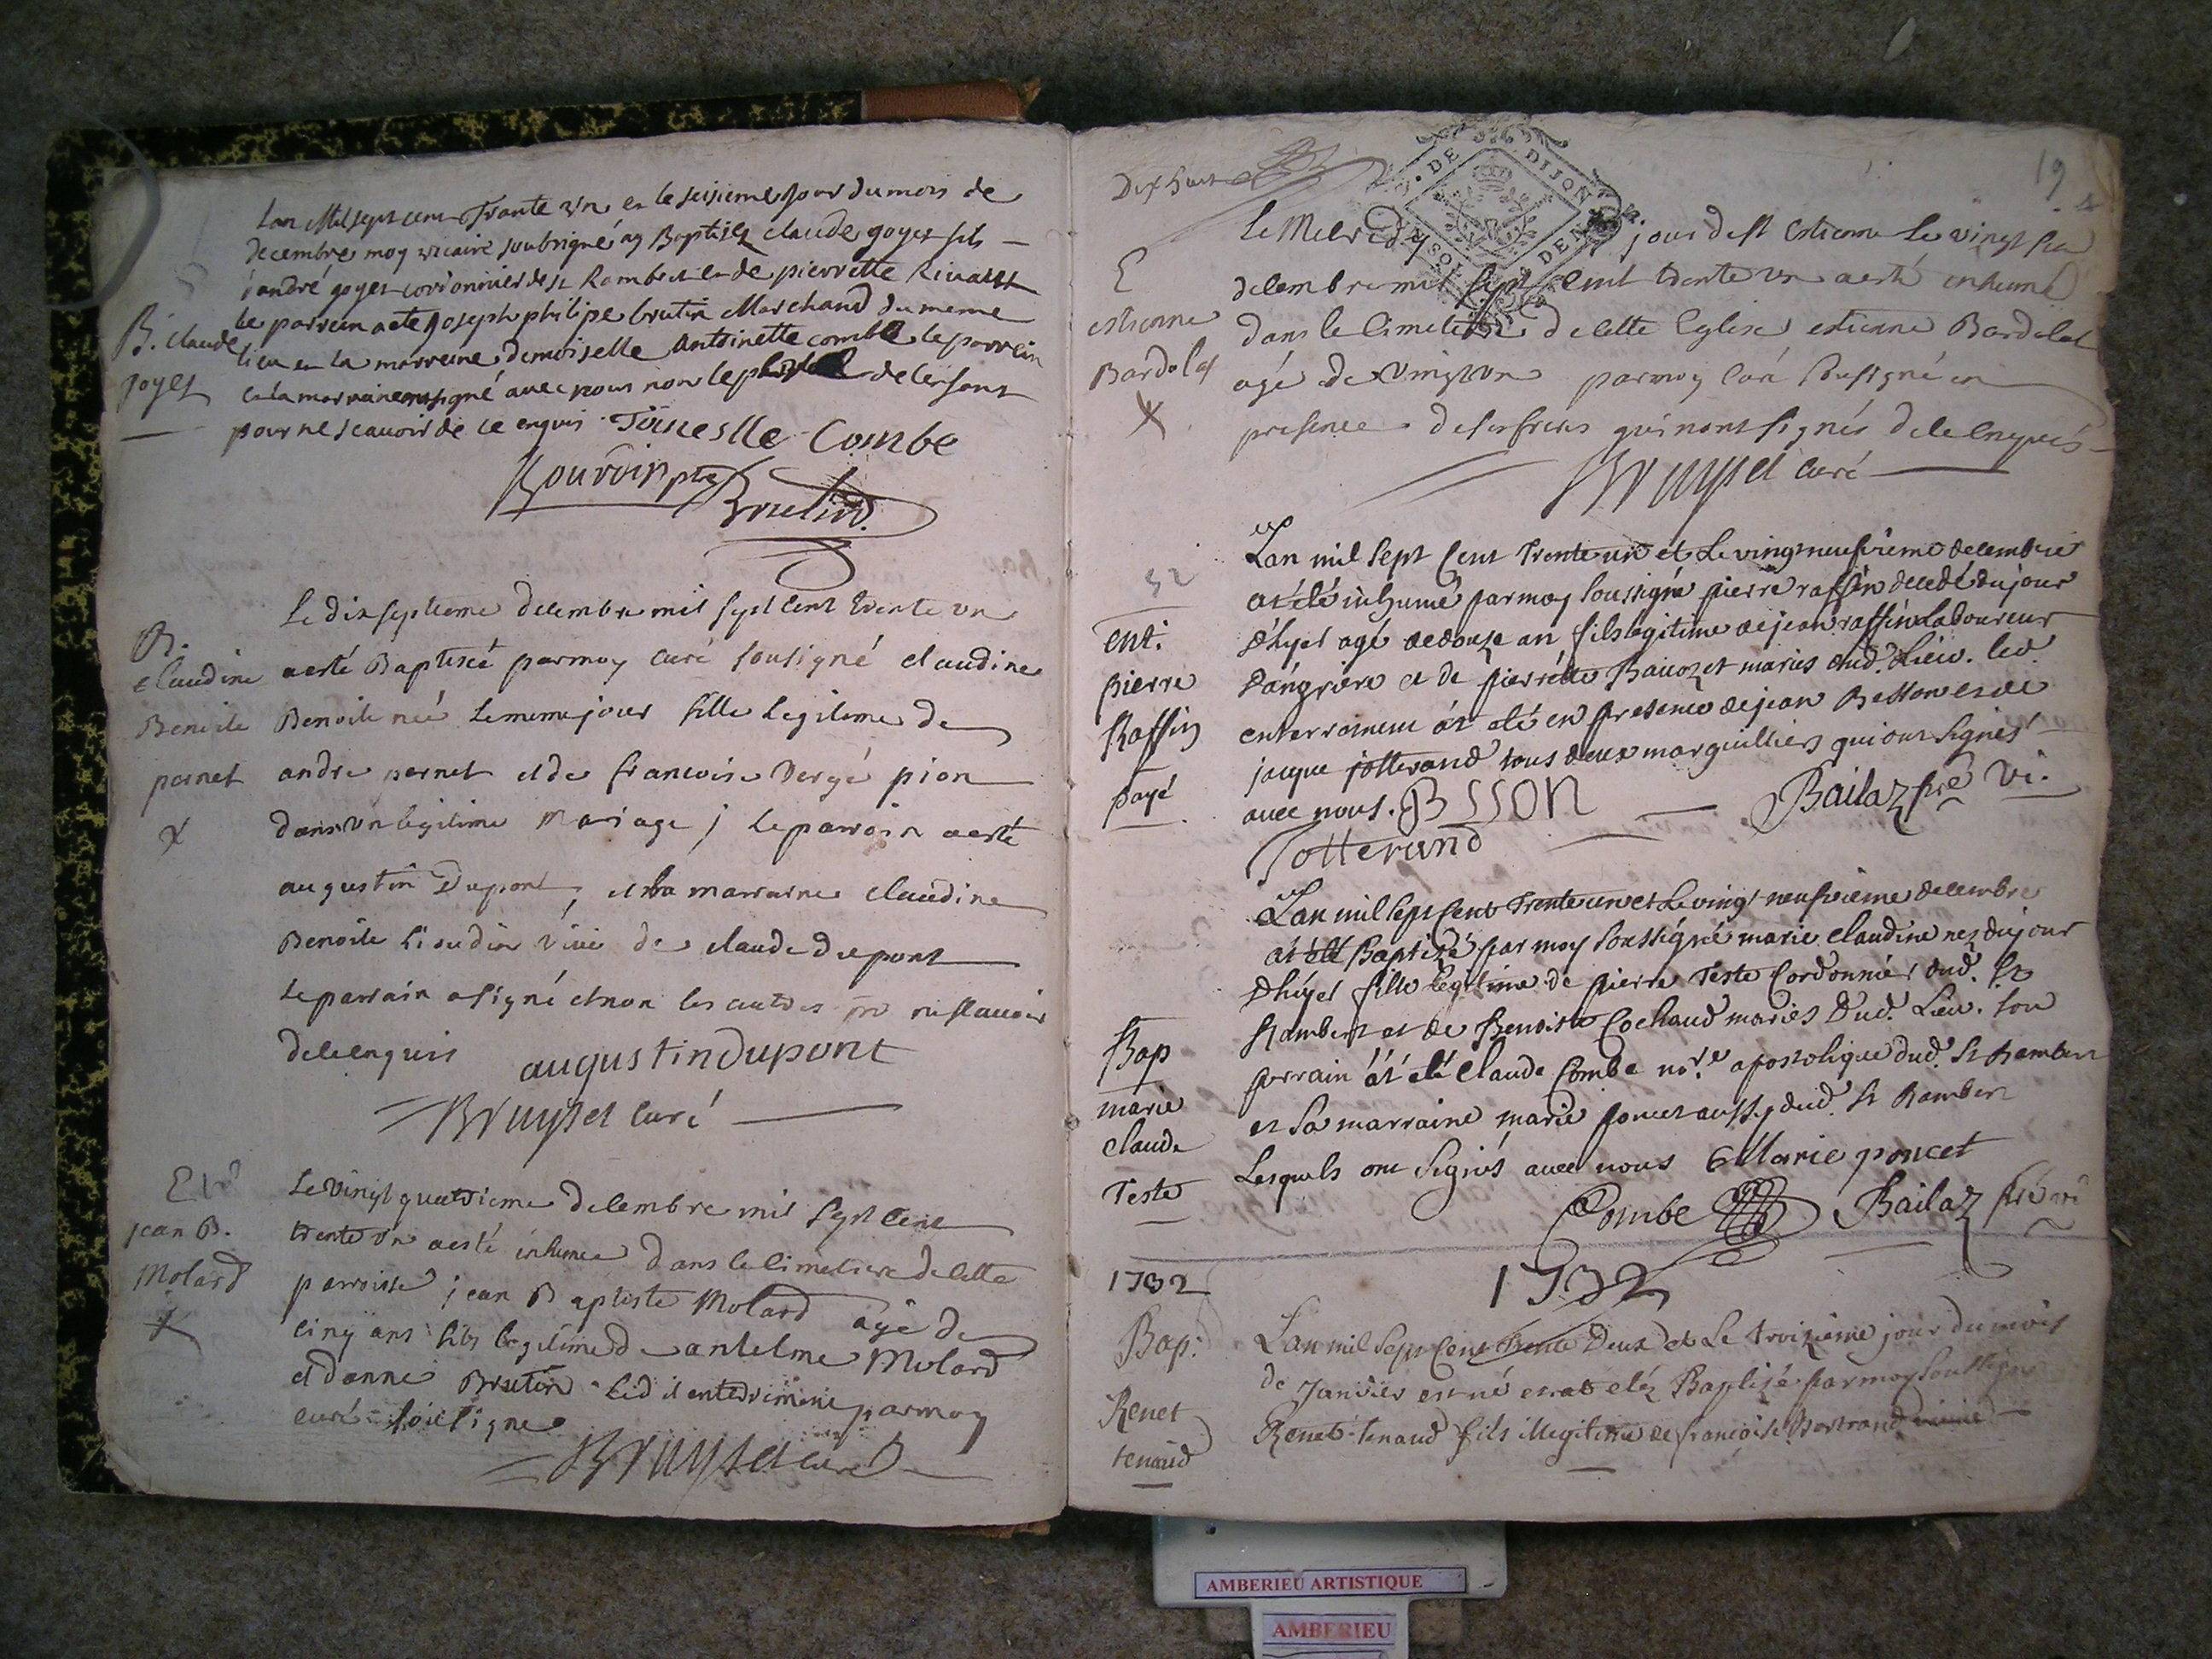 Lan Mil sept cent Trante un & le seisieme jour du mois de
decembre moy vicaire soubsigné ay Baptisez claude goyet fils
d'andré goyet cordonnier de st Rambert et de pierrette
le parrein a ete joseph philipe brutin Marchand du meme
B. claude
lieu & la marreine demoiselle Antoinette combe le parrein
goyet
et la marraine ont signé avec nous non le de l'enfant
pour ne scavoir de ce enquis Toineslle Combe
Bouvoir ptre Brutin
Le dix septieme decembre mil sept cent trente un
B.
claudine
a esté Baptiseé par moy curé sousigné claudine
Benoite
Benoite neé le meme jour fille legitime de
pernet
andre pernet et de francoise Vergé pion
x
dans un legitime Mariage ; le parrain a esté
augustin Dupont, et la marraine claudine
Benoite de claude dupont
le parrain a signé et non les autres ne scavoir
de ce enquis augustin dupont
Bruyset curé
Le vingt quatrieme decembre mil sept cent
jean B.
trente un a esté inhumé dans le cimetiere de cette
Molard
parroisse jean Baptiste Molard agé de
x
cinq ans fils legitime de antelme Molard
et d'anne Brutin led it enterrement par moy
curé sousigné
Bruyset curé
Dix huit
DE DIJON
19
le Mecredy jour de st estienne le vingt six
E
decembre mil sept cent trente un a esté inhumé
estienne
dans le cimetiere de cette Eglise estienne Bardolat
Bardolat
agé de vingt un par moy curé sousigné en
x
presence de ses freres qui n'ont signés de ce enquis
Bruyset curé
Lan mil sept cent Trente un et le vingt neufvieme decembre
at été inhumé par moy soussigné pierre raffin decedé du jour
ent.
d'hyer agé de douze an fils legitime de jean raffin Laboureur
pierre
d'angriere et de pierrette Baivozet mariés dud. Lieu. led.
Raffin
enterrement at eté en presence de jean Besson et de
payé
jacque jotterand tous deux marguilliers qui ont signés
avec nous. BSSON Bailaz ptre vi.
Jotterand
Lan mil sept cent Trente un et Le vingt neufvieme decembre
at été Baptizé par moy soussigné marie claudine nez du jour
d'hyer fille legitime de pierre Teste Cordonnier dud. St
Bap
Rambert et de Benoiste Cochaud mariés dud. Lieu. son
marie
parrain at eté Claude Combe no.re apostolique dud. St Rambert
claude
et sa marraine marie poncet aussy dud. St Rambert
Teste
Lesquels ont signés avec nous Marie poncet
Combe Bailaz ptre vi.
1732
1732
Bap.
Lan mil sept cent trente Deux et le troizieme jour du mois
Renet
de Janvier est né et at eté Baptizé par moy soussigné
tenaud
Renet tenaud fils illegitime de francoise Bertrand
AMBERIEU ARTISTIQUE
AMBERIEU